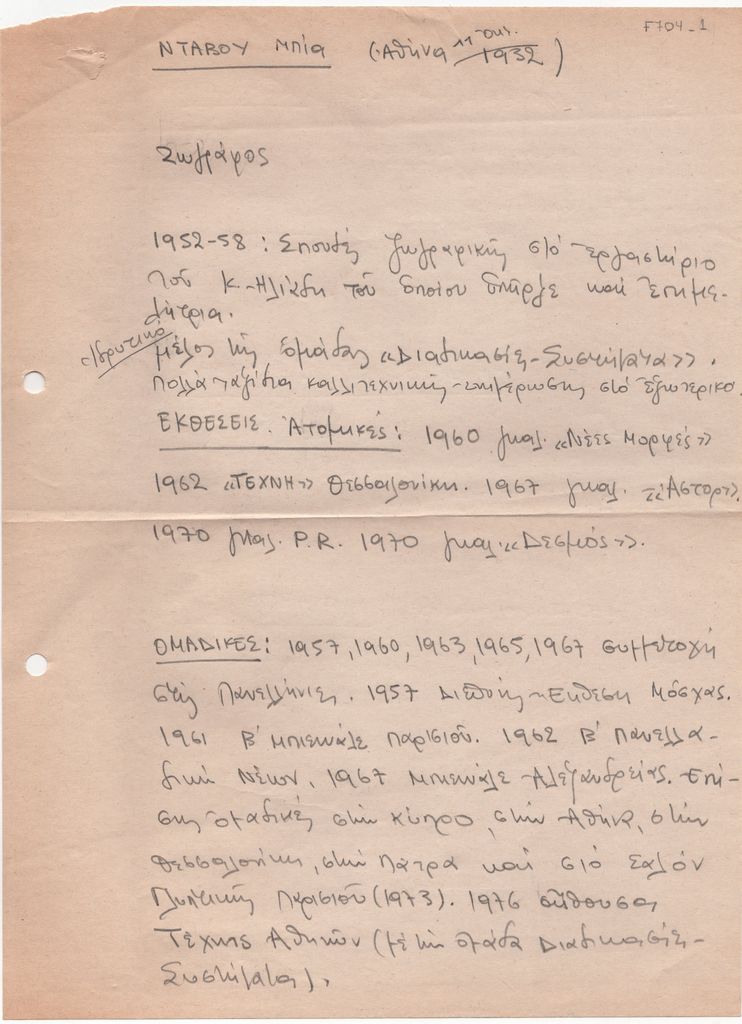 F704-1
ΝΤΑΒΟΥ Μπία (Αθήνα 11 Οκτ. 1932)
Ζωγράφος
1952-58: Σπουδές ζωγραφικής στό ἐργαστήριο
τοῦ Κ. Ηλιάδη τοῦ ὁποίου ὑπῆρξε καί ἐπιμε-
λήτρια.
ιδρυτικό
μέλος τῆς ὁμάδας «Διαδικασίες-Συστήματα».
Πολλά ταξίδια καλλιτεχνικῆς ἐνημέρωσης στό ἐξωτερικό.
ΕΚΘΕΣΕΙΣ. Ἀτομικές: 1960 γκαλ. «Νέες Μορφές»
1962 «ΤΕΧΝΗ» Θεσσαλονίκη. 1967 γκαλ. «Ἄστορ».
1970 γκαλ. P.R. 1970 γκαλ. «Δεσμός».
ΟΜΑΔΙΚΕΣ: 1957, 1960, 1963, 1965, 1967 συμμετοχή
στίς Πανελλήνιες. 1957 Διεθνής Ἔκθεση Μόσχας.
1961 Β' Μπιεννάλε Παρισιοῦ. 1962 Β' Πανελλα-
δική Νέων. 1967 Μπιεννάλε Ἀλεξανδρείας. Ἐπί-
σης ὁμαδικές στήν Κύπρο, στήν Ἀθήνα, στήν
Θεσσαλονίκη, στήν Πάτρα καί στό Σαλόν
Γλυπτικῆς Παρισιοῦ (1973). 1976 αἴθουσα
Τέχνης Ἀθηνῶν (μέ τήν ὁμάδα Διαδικασίες-
Συστήματα).